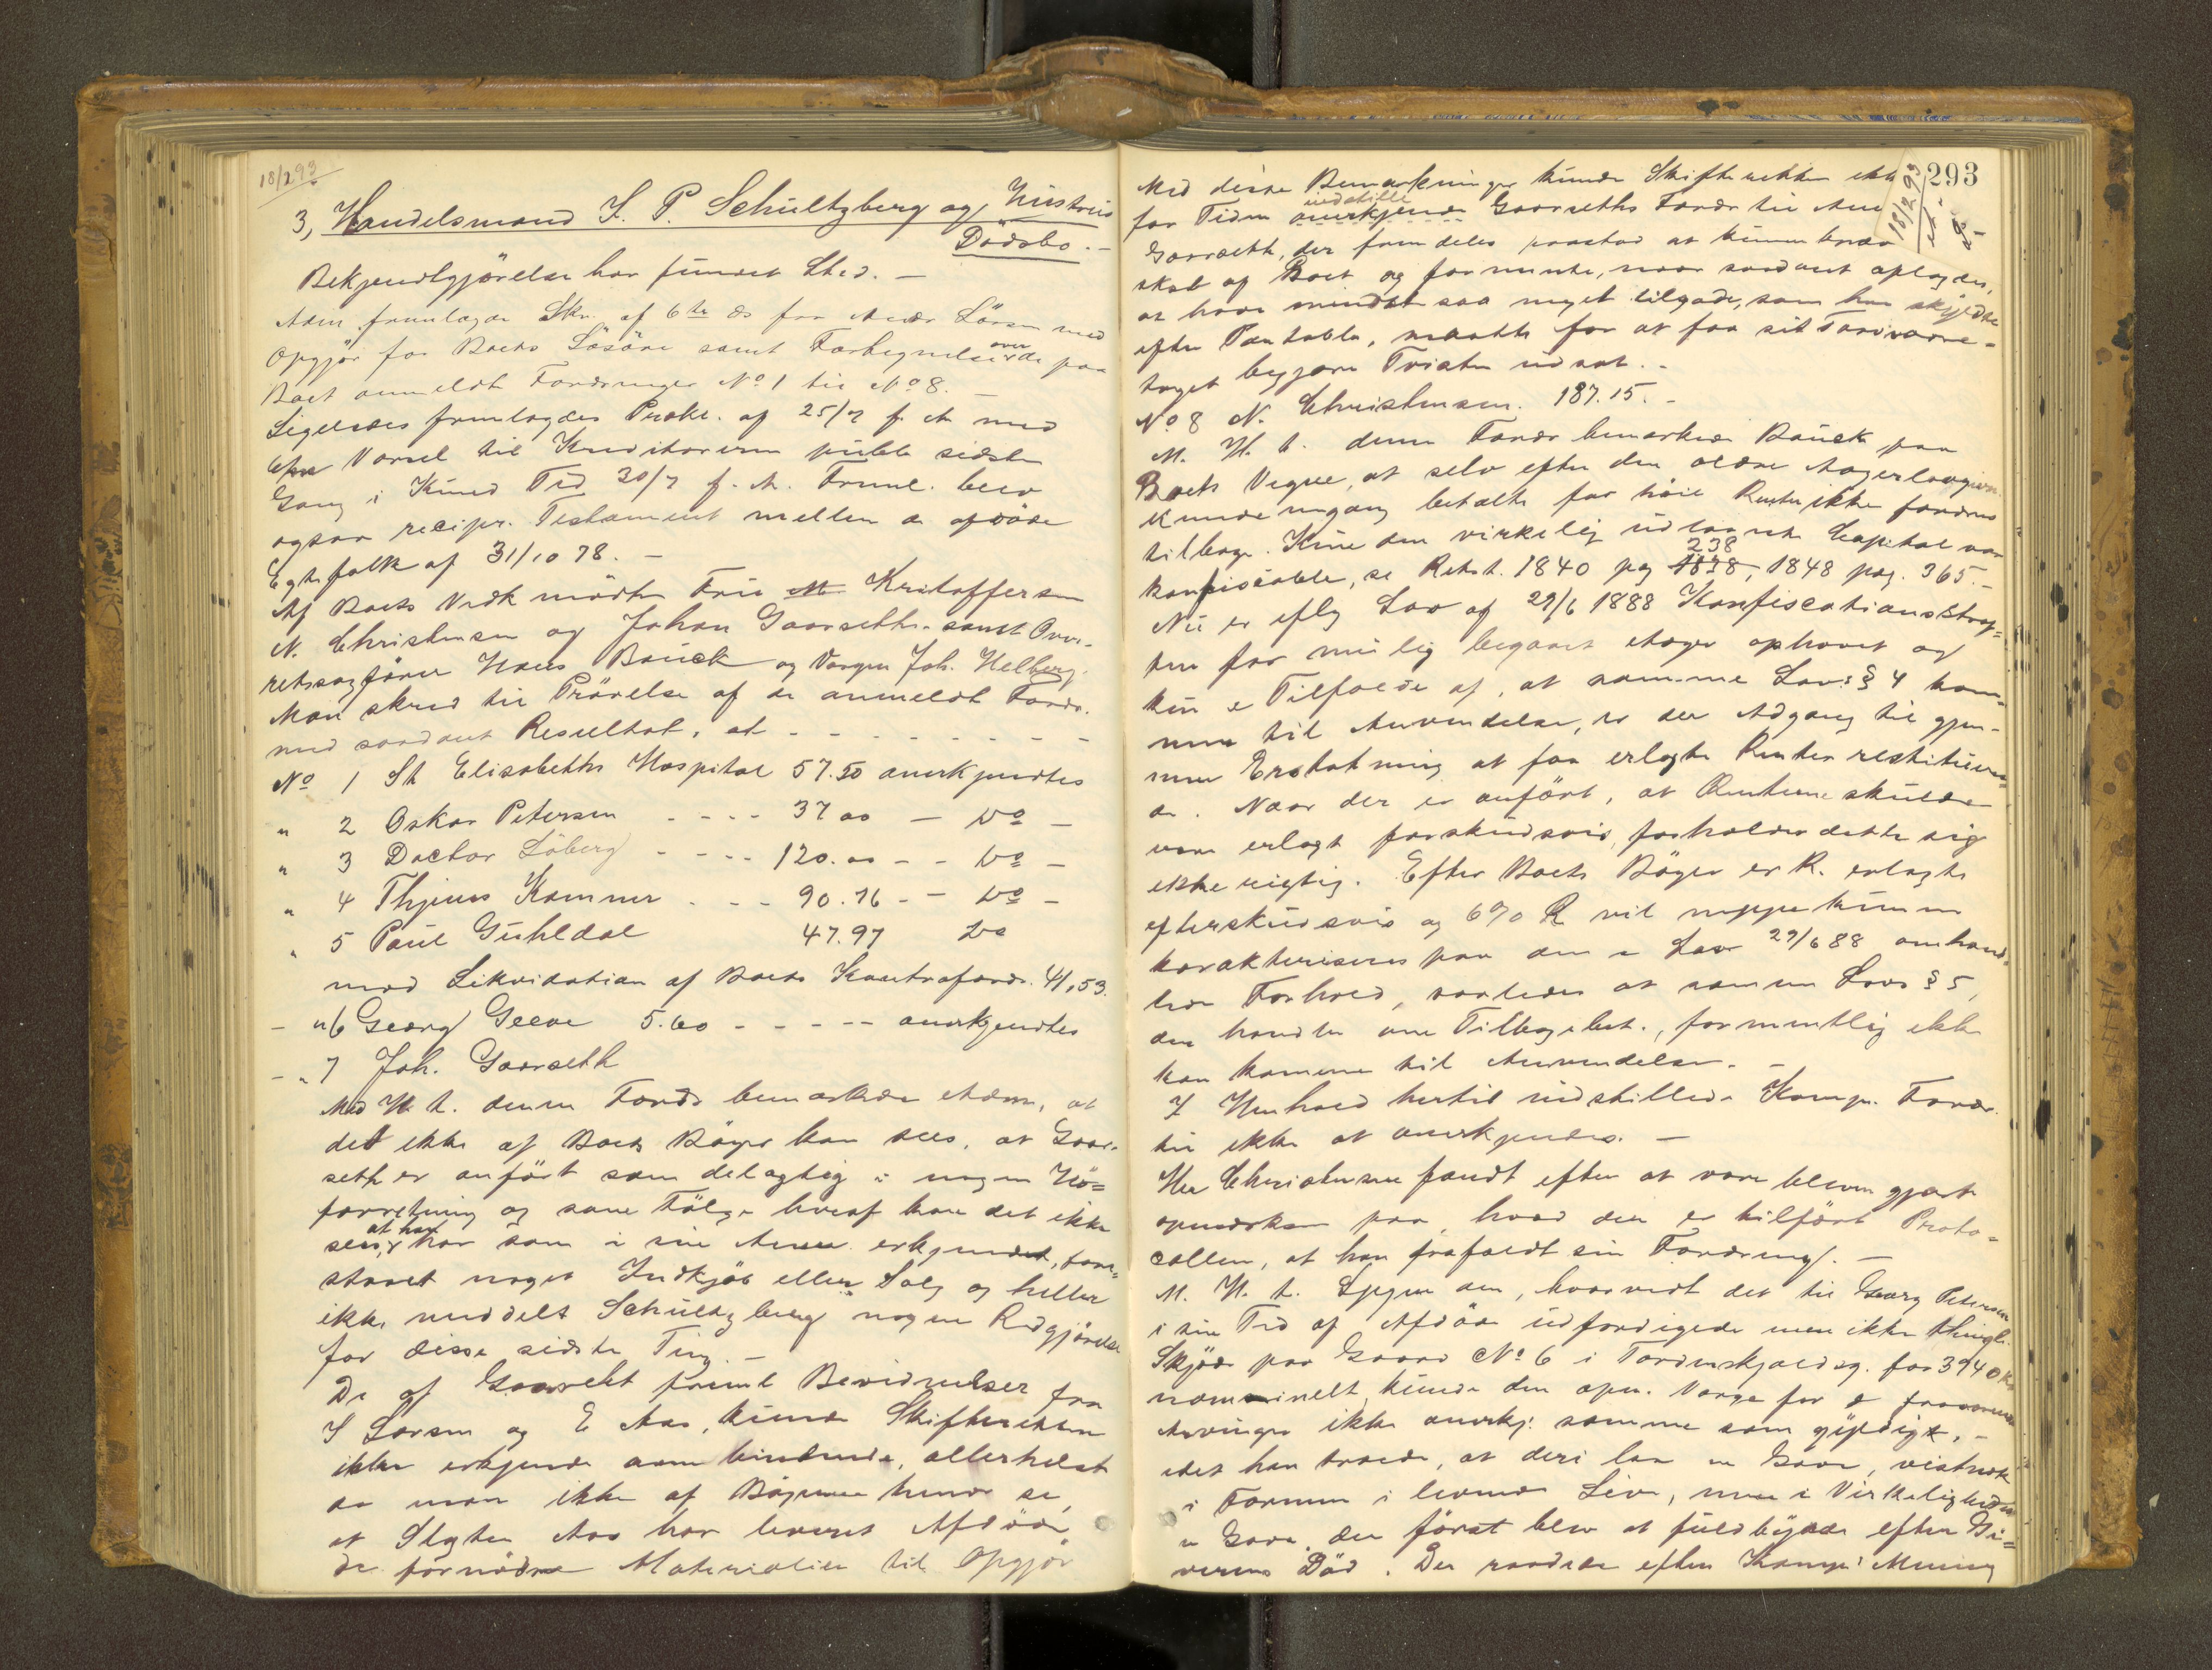 18/293
3, Handelsmand S. P. Schultzberg og Hustrus
Dödsbo. -
Bekjendtgjörelse har fundet Sted. -
Adm. fremlagde Skr. af 6te ds fra Larsen med
Opgjör for Boets Lösöre samt Fortegnelse over de paa
Boet anmeldte Fordringer No 1 til No 8. -
Ligeledes fremlagdes Prokl. af 25/7 f. A. med
Varsel til Kreditorerne publ. sidste
Gang i Kund. Tid. 30/7 f. A. Freml. blev
ogsaa recipr. Testament mellem de afdöde
Egtefolk af 31/10 78. -
Af Boets Vedk mödte Fru Kristoffersen
N. Christensen og Johan Gaarseth. samt Over-
retssagförer Hans Bauck og Vergen Joh. Helberg.
Man skred til Prövelse af de anmeldte Fordr.
med saadant Resultat, at - - - - - - - -
No 1 St Elisabeths Hospital 57.50 anerkjendtes
" 2 Oskar Petersen - - - - 37 00 - Do -
" 3 Doctor Löberg - - - - 120.00 - - Do -
" 4 Thjems Kommer - - - 90.76 - - Do -
" 5 Paul Guhldal 47.97 Do
mod Likvidation af Boets Kontrafordr. 41,53.
- " 6 Georg Geeve 5.60 - - - - - anerkjendtes
- " 7 Joh. Gaarseth
Med H. t. denne Fordr bemærkede Adm, at
det ikke af Boets Böger kan sees, at Gaar-
seth er anfört som delagtig i nogen Hö=
forretning og som Fölge heraf kan det ikke
sees, at han har som i sin erkjendt, fore=
staaet noget Indkjöb eller Salg og heller
ikke meddelt Schultzberg nogen Redgjörelse
for disse sidste Ting. -
De af Gaarseth freml Bevidnelser fra
S Larsen og E Aas, kunde Skifteretten
ikke erkjende som bindende, allerhelst
da man ikke af Bögerne kunde se,
at Slagter Aas har leveret Afdöde
de fornödne Materialier til Opgjör
293
18/293
Med disse Bemærkninger kunde Skifteretten ikke
for Tiden anerkjende indstille Gaarseths Fordr til
Gaarseth, der fremdeles paastod at kunne
skab af Boet og formente, naar saadant oplagdes,
at have mindst saa meget tilgode, som han skyldte
efter Pantobl., maatte for at faa sit Tarv vare=
taget begjære Tvisten udsat. -
No 8 N. Christensen. 187.15. -
M. H. t. denne Fordr bemærkede Bauck paa
Boets Vegne, at selv efter den ældre Aagerlovgivn.
kunde engang betalte for höie Renter ikke fordres
tilbage. Kun den virkelig udlaante Capital var
konfiscable, se Retst. 1840 pag 1838 238, 1848 pag. 365. -
Nu er iflg Lov af 29/6 1888 Konfiscationsstraf=
fen for ulovlig begaaet Aager ophævet og
kun i Tilfælde af, at samme Lovs § 4 kom=
mer til Anvendelse, er der Adgang til gjen-
nem Erstatning at faa erlagte Renter restituere=
de. Naar der er anfört, at Renterne skulde
være erlagt forskudsvis, forholder dette sig
ikke rigtig. Efter Boets Böger er R. erlagte
efterskudsvis og 6% R vil neppe kunne
karakteriseres paa den i Lov 29/6 88 omhand=
lede Forhold, saaledes at samme Lovs § 5,
der handler om Tilbagebet., formentlig ikke
kan komme til Anvendelse. -
I Henhold hertil indstillede Komp. Fordr.
til ikke at anerkjendes. -
Hr Christensen fandt efter at være bleven gjort
opmærksom paa, hvad der er tilfört Proto=
collen, at han frafaldt sin Fordring. -
M. H. t. Spgm om, hvorvidt det til Georg Petersen
i sin Tid af Afdöde udfærdigede men ikke thingl.
Skjöde paa Gaard No 6 i Tordenskjoldsg. for 3940 Kr
nominelt kunde den opn. Verge for de fraværende
Arvinger ikke anerkj. samme som gyldigt, -
idet han troede, at deri laa en Gave, vistnok
i Formen i levende Live, men i Virkeligheden
en Gave der förat blev at fuldbyrde efter Gi=
verens Död. Der raadede efter Komp. Mening